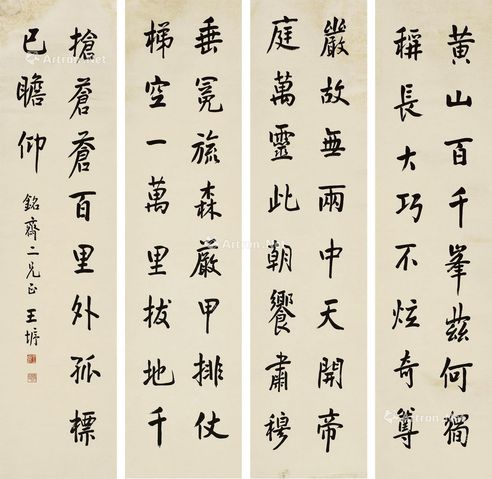 黄山百千峯茲何獨
稱長大巧不炫奇尊
嚴故無兩中天開帝
庭萬靈此朝饗肅穆
垂冕旒森嚴甲排仗
梯空一萬里拔地千
搶蒼蒼百里外孤標
已瞻仰
銘齋二兄正 王墀
Artron.Net
Artron.Net
Artron.Net
Artron.Net
Artron.Net